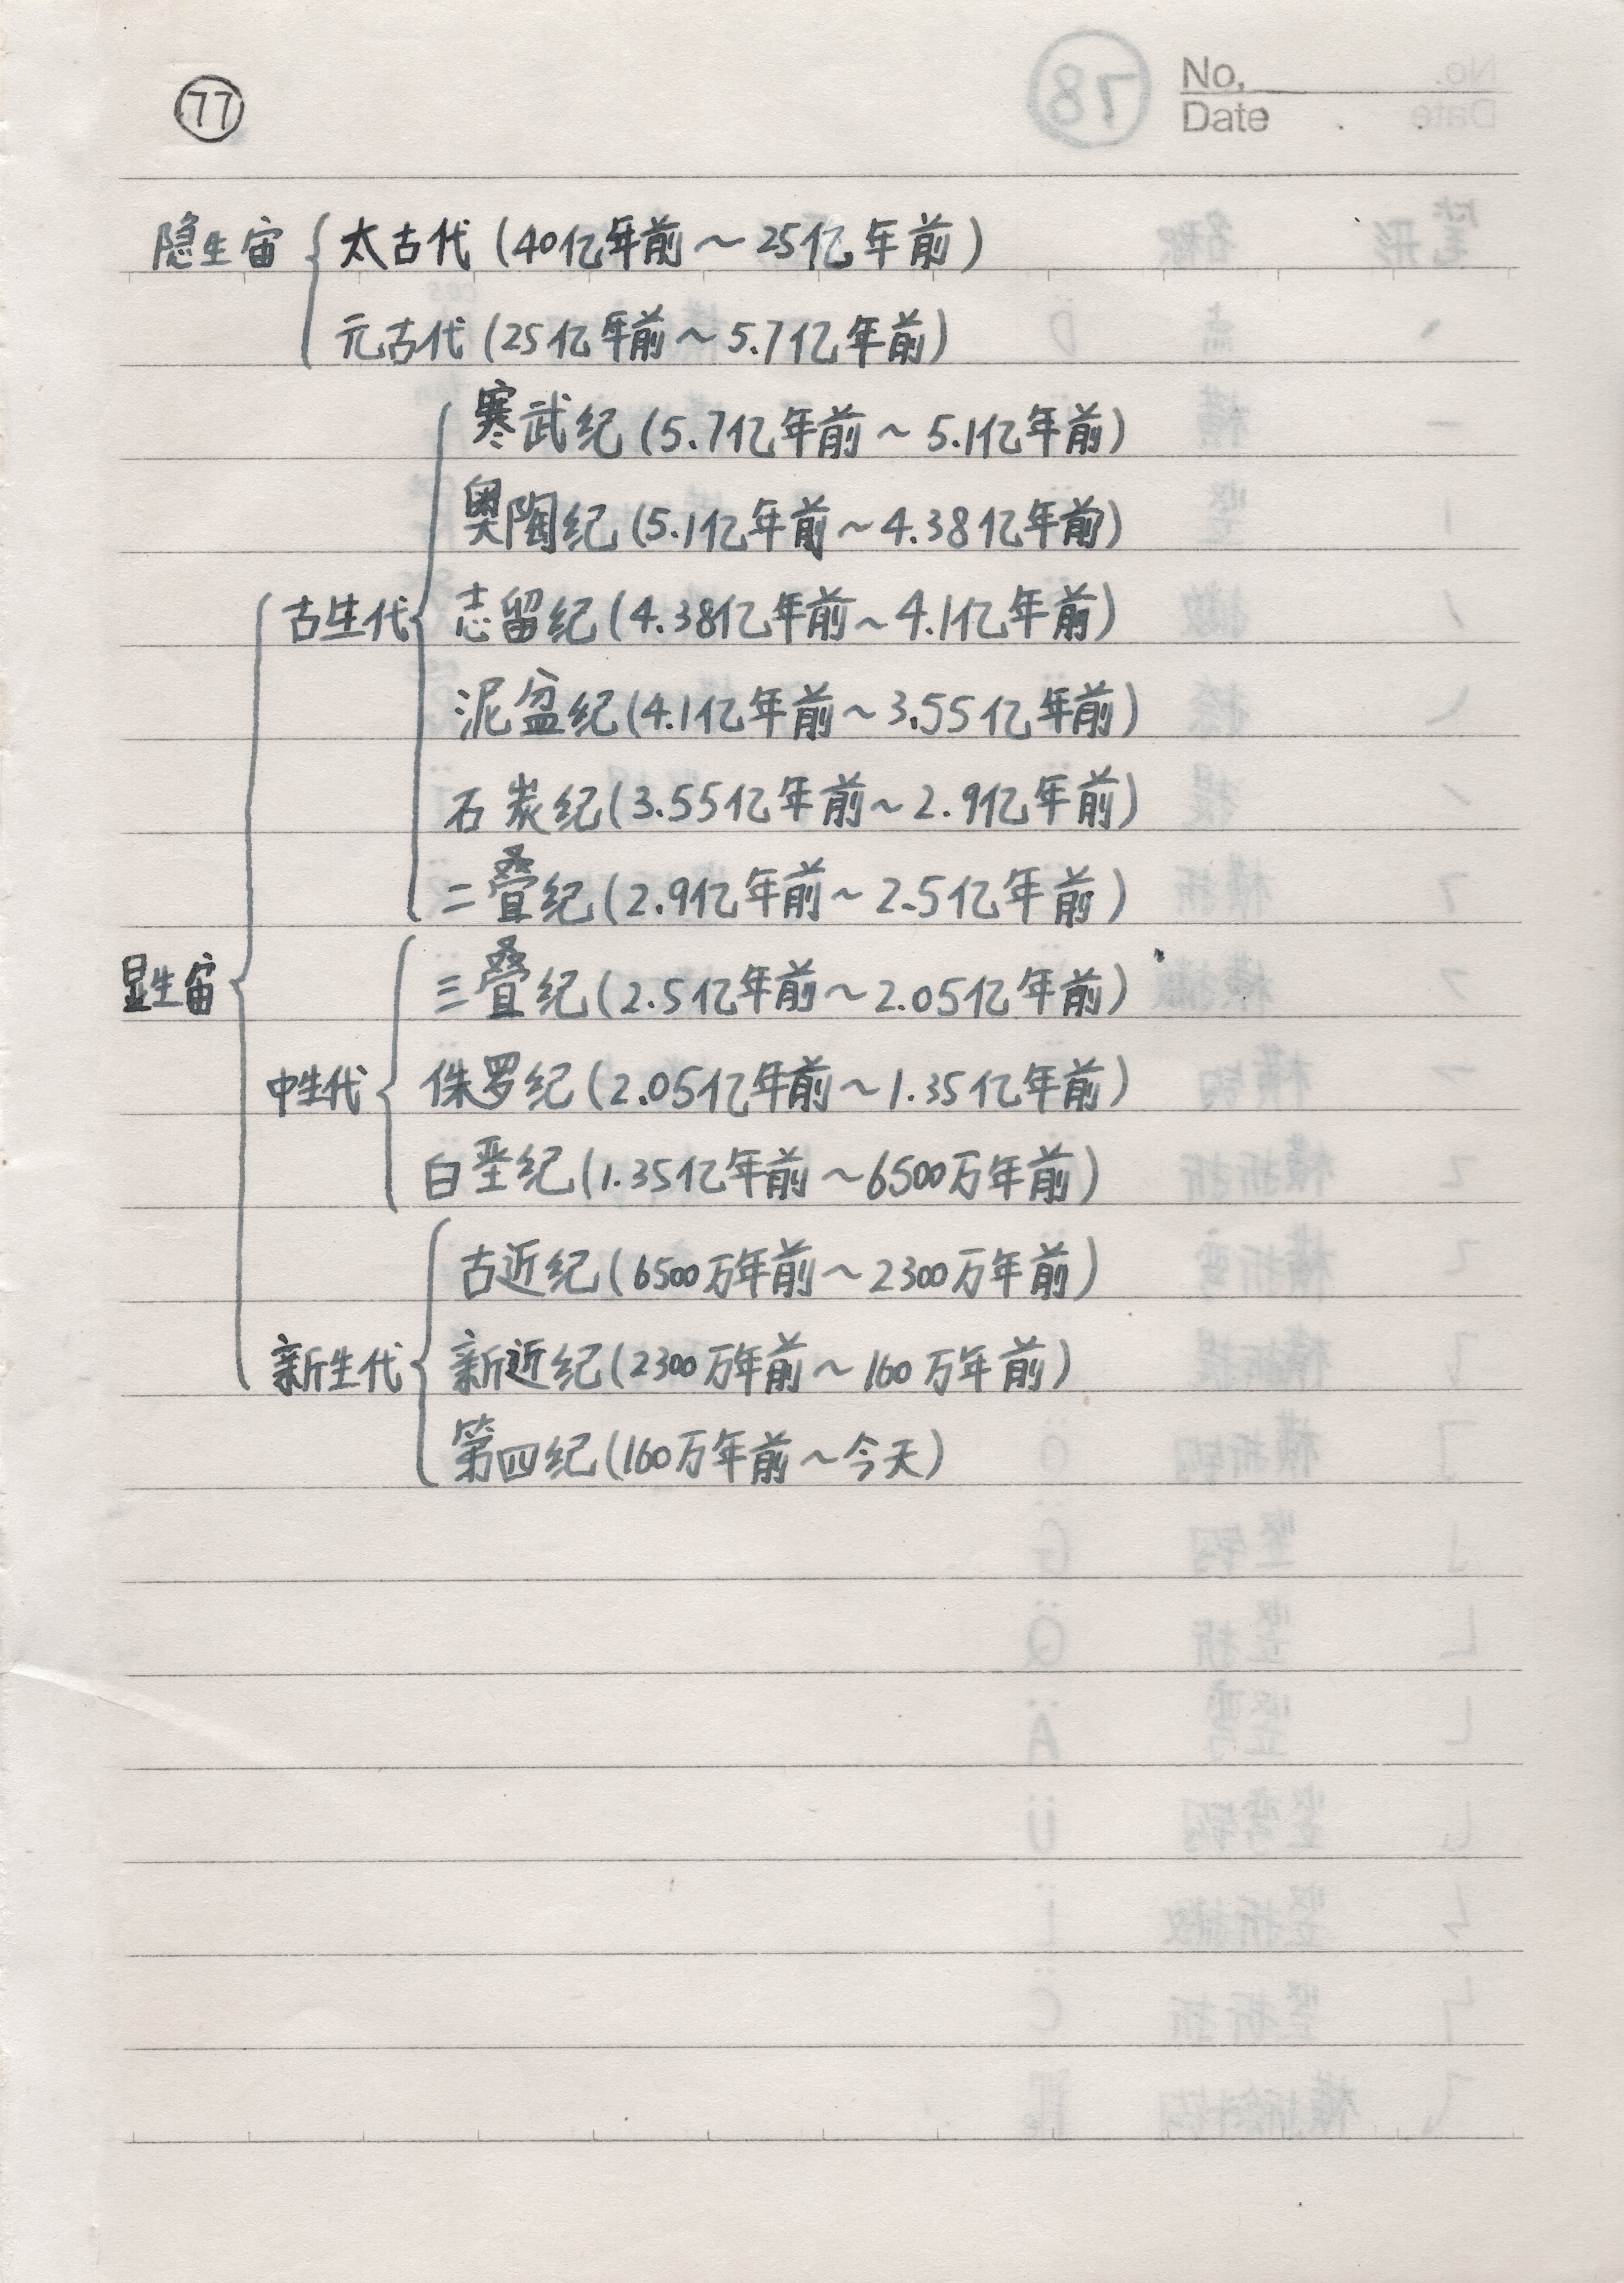 77
No.
Date
隐生宙 太古代（40亿年前～25亿年前）
元古代（25亿年前～5.7亿年前）
寒武纪（5.7亿年前～5.1亿年前）
奥陶纪（5.1亿年前～4.38亿年前）
古生代 志留纪（4.38亿年前～4.1亿年前）
泥盆纪（4.1亿年前～3.55亿年前）
石炭纪（3.55亿年前～2.9亿年前）
二叠纪（2.9亿年前～2.5亿年前）
显生宙 三叠纪（2.5亿年前～2.05亿年前）
中生代 侏罗纪（2.05亿年前～1.35亿年前）
白垩纪（1.35亿年前～6500万年前）
古近纪（6500万年前～2300万年前）
新生代 新近纪（2300万年前～160万年前）
第四纪（160万年前～今天）